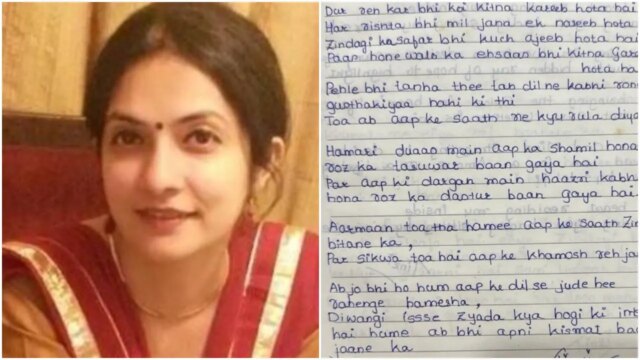 Dur reh kar bhi koi kitna kareeb hota hai
Har rishta bhi mil jana ek naseeb hota
Zindagi ka safar bhi kuch ajeeb hota hai
Paas hone wale ka ehsaas bhi kitna
hota ha
Pehle bhi tanha thee tab dil ne kabhi ron
gusthakiyaa nahi ki thi
Toa ab aap ke saath ne kyu rula diya
Hamari duaao main aap ka shamil hona
roz ka tasuwar baan gaya hai
Par aap ki dargah main haazri kabh
hona roz ka dastur baan gaya hai
Aarmaan toa tha hamee aap ke saath Zin
bitane ka,
Par sikwa toa hai aap ke khamosh reh ja
Ab jo bhi ho hum aap ke dil se jude hee
rahenge hamesha,
Diwangi issse zyada kya hogi ki int
hai hume ab bhi apni kismat ba
jaane ka